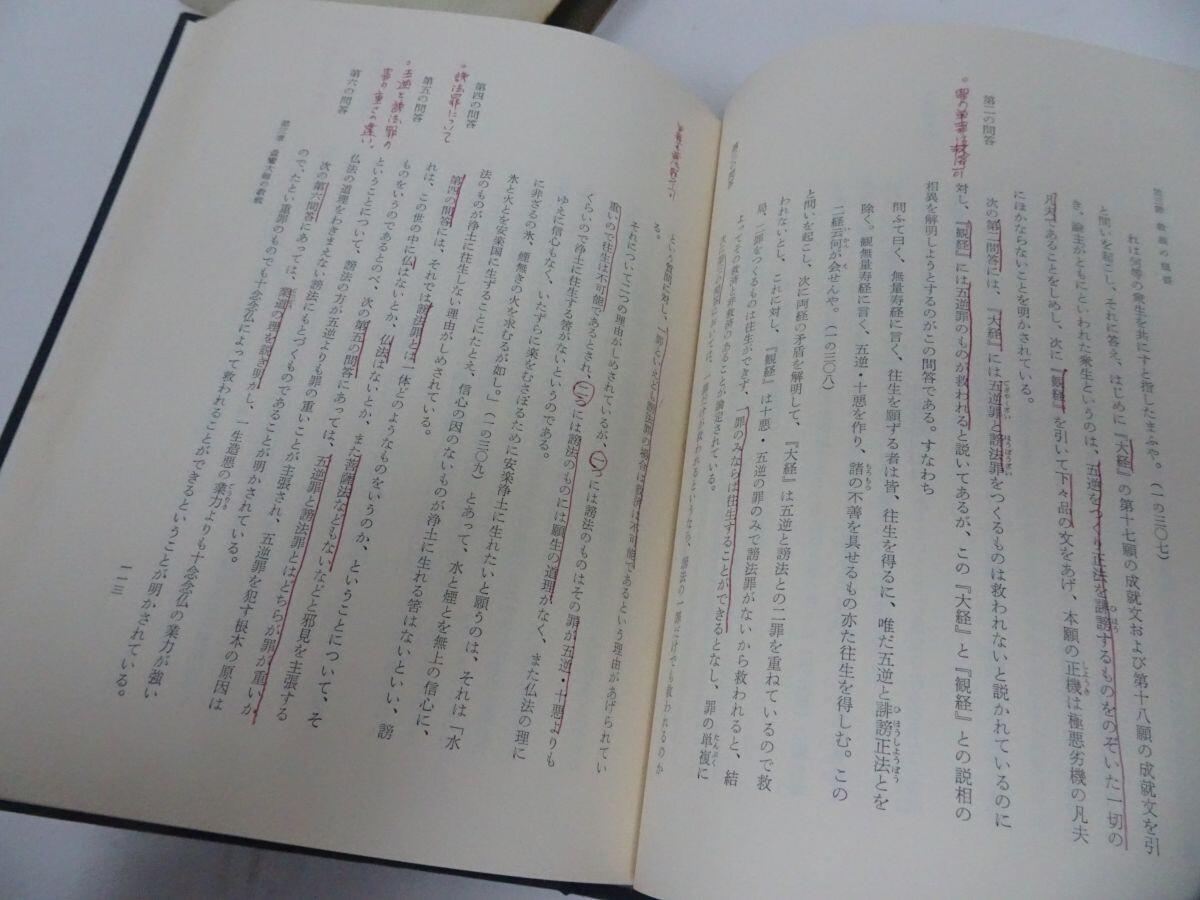 第三部 教義の概容
れは何等の衆生を共にすと指したまふや。(一の三〇七)
と問いを起し、それに答え、はじめに『大経』の第十七願の成就文および第十八願の成就文を引
き、論主がともにといわれた衆生というのは、五逆をつくり正法を誹謗するものをのぞいた一切の
凡夫であることをしめし、次に『観経』を引いて下々品の文をあげ、本願の正機は極悪劣機の凡夫
にほかならないことを明かされている。
第二の問答
次の第二問答には、『大経』には五逆罪と謗法罪をつくるものは救われないと説かれているのに
対し、『観経』には五逆罪のものが救われると説いてあるが、この『大経』と『観経』との説相の
相異を解明しようとするのがこの問答である。すなわち
問ふて曰く、無量寿経に言く、往生を願ずる者は皆、往生を得るに、唯だ五逆と誹謗正法とを
除く。観無量寿経に言く、五逆・十悪を作り、諸の不善を具せるもの亦た往生を得しむ。この
二経云何が会せんや。(一の三〇八)
と問いを起こし、次に両経の矛盾を解明して、『大経』は五逆と謗法との二罪を重ねているので救
われないとし、これに対し、『観経』は十悪・五逆の罪のみで謗法罪がないから救われると、結
局、二罪をつくるものは往生ができず、一罪のみならば往生することができるとなし、罪の単複に
よってその救済と非救済のあることが
という質問に対し、
る。
重いので往生は不可能であるとされ、二つには謗法のものには願生の道理がなく、また仏法の理に
それについて二つの理由がしめされているが、一つには謗法のものはその罪が五逆・十悪よりも
くらいので浄土に往生する筈がないというのである。
ゆえに信心もなく、いたずらに楽をむさぼるために安楽浄土に生れたいと願うのは、それは「水
に非ざるの氷、煙無きの火を求むるが如し。」(一の三〇九)とあって、水と煙とを無上の信心に、
氷と火とを安楽国に生ずることにたとえ、信心の因のないものが浄土に生れる筈はないといい、謗
法のものが浄土に往生しない理由がしめされている。
第四の問答
謗法罪について
第四の問答には、それでは謗法罪とは一体どのようなものをいうのか、ということについて、そ
れは、この世の中に仏はないとか、仏法はないとか、また菩薩法などもないなどと邪見を主張する
ものをいうのであるとのべ、次の第五の問答にあっては、五逆罪と謗法罪とはどちらが罪が重いか
第五の問答
五逆と謗法罪の
罪の重さの違い。
ということについて、謗法の方が五逆よりも罪の重いことが主張され、五逆罪を犯す根本の原因は
仏法の道理をわきまえない謗法にもとづくものであることが明かされている。
第六の問答
次の第六問答にあっては、業道の理を説き明かし、一生造悪の業力よりも十念念仏の業力が強い
ので、たとい重罪のものでも十念念仏によって救われることができるということが明かされている。
第三章 曇鸞大師の教義
一一三